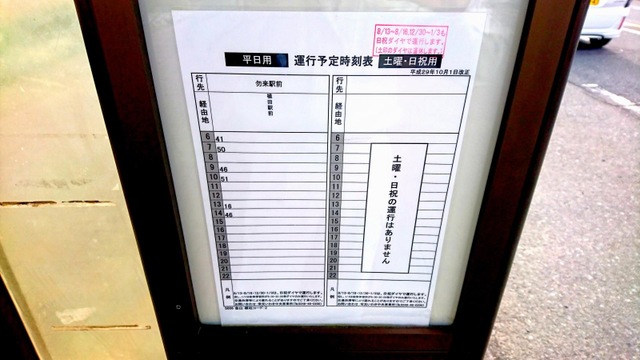 8/13~8/16,12/30~1/3も
日祝ダイヤで運行します。
(土曜のダイヤは運休します。)
平日用 運行予定時刻表 土曜・日祝用
平成29年10月1日改正
行先 勿来駅前 行先
経由地 植田駅前 経由地
6 41 6
7 50 7
8 8
9 46 9
10 51 10
11 11
12 12
13 16 13
14 46 14
15 15
16 16
17 17
18 18
19 19
20 20
21 21
22 22
土曜・日祝の運行はありません
凡例 凡例